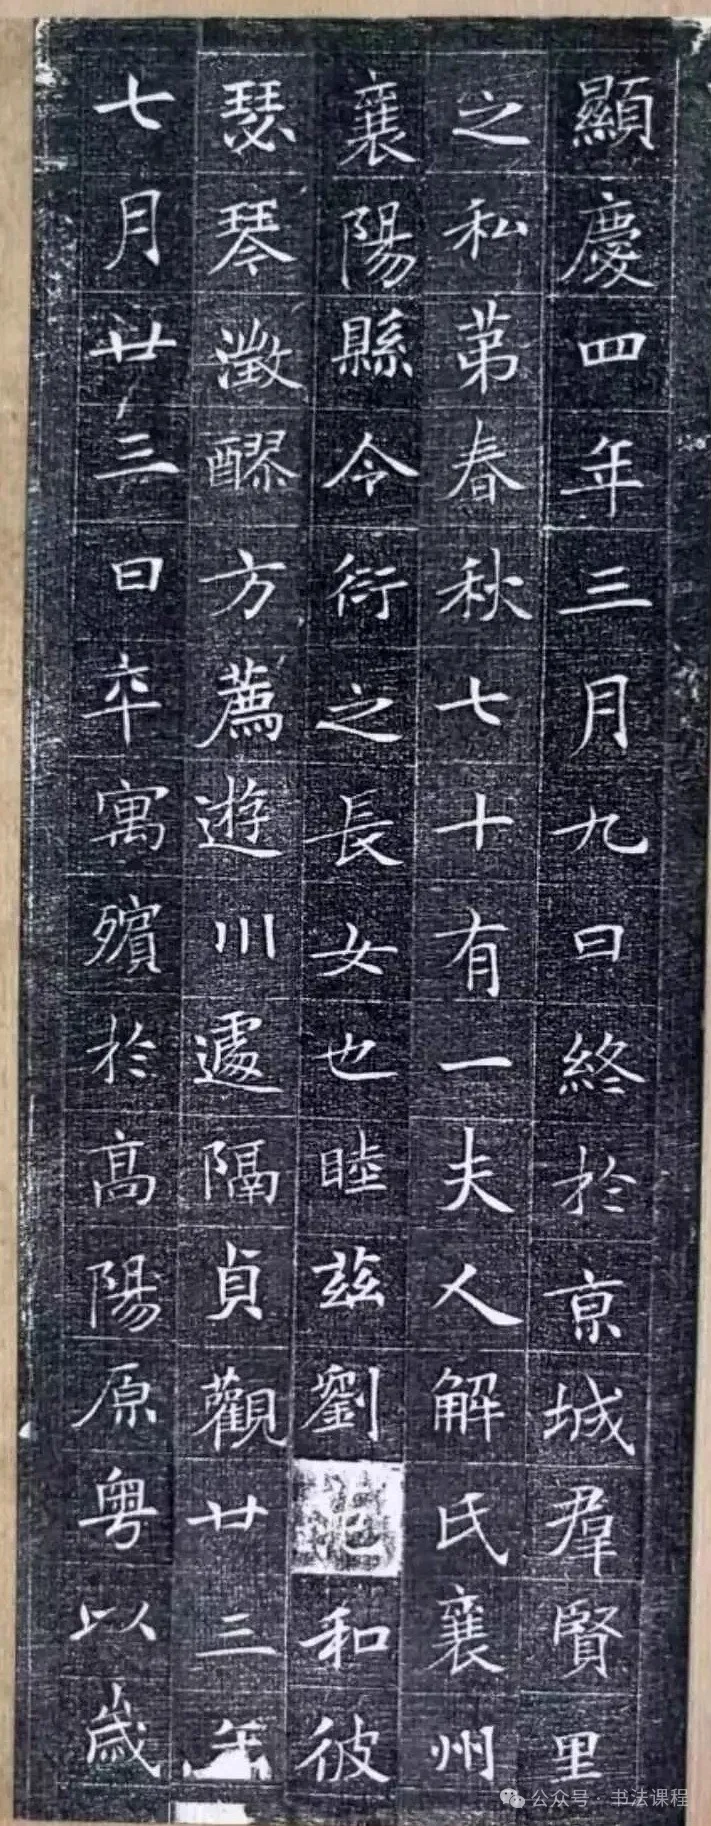 顯慶四年三月九日終於京城羣賢里
之私苐春秋七十有一夫人解氏襄州
襄陽縣令衍之長女也睦兹劉和彼
瑟琴澂醪方薦遊川遽隔貞觀廿三年
七月廿三日卒寓殯於高陽原粤以歲
公众号·书法课程